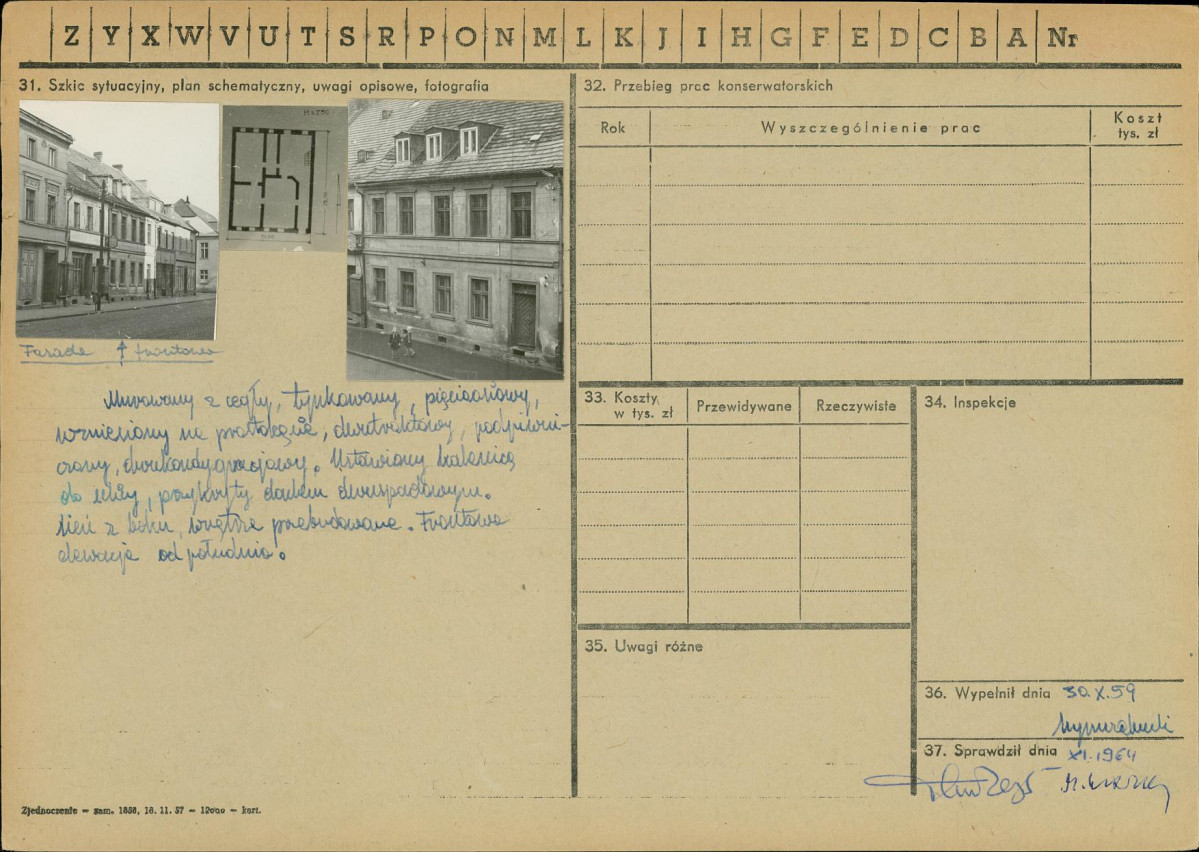 Z Y X W V U T S R P O N M L K J I H G F E D C B A Nr
31. Szkic sytuacyjny, plan schematyczny, uwagi opisowe, fotografia
Fasada ↑ frontowa
Murowany z cegły, tynkowany, pięcioosiowy,
wzniesiony na prostokącie, dwutraktowy, podpiwni-
czony, dwukondygnacjowy. Ustawiony kalenicą
do ulicy, przykryty dachem dwuspadowym.
Sień z boku, wnętrze przebudowane. Frontowa
elewacja od południa.
Zjednoczenie — zam. 1858, 16. 11. 57 — 12000 — kart.
32. Przebieg prac konserwatorskich
Rok
Wyszczególnienie prac
Koszt
tys. zł
33. Koszty
w tys. zł
Przewidywane
Rzeczywiste
34. Inspekcje
35. Uwagi różne
36. Wypełnił dnia 30.X.59
37. Sprawdził dnia XI.1964